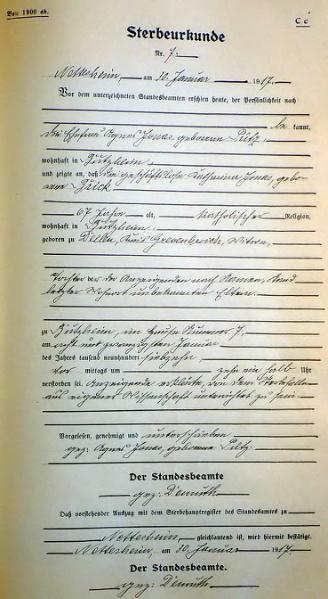 Von 1900 ab.
C c
Sterbeurkunde
Nr. 7.
Nettersheim, am 30. Januar 1917.
Vor dem unterzeichneten Standesbeamten erschien heute, der Persönlichkeit nach
kannt,
die Ehefrau Agnes Jonas, geborene Pütz
wohnhaft in
und zeigte an, daß die geschäftslose Katharina Jonas, gebo-
rene Frick
67 Jahre alt, katholischer Religion,
wohnhaft in
geboren zu
Tochter der der Anzeigenden nach Namen, Stand
letzter Wohnort unbekannten Eltern.
zu im Hause Nummer 7
am acht und zwanzigsten Januar
des Jahres tausend neunhundert siebzehn
vor mittags um zehn ein halb Uhr
verstorben sei. Anzeigende erklärte, von dem Sterbefalle
aus eigener Wissenschaft unterrichtet zu sein.
Vorgelesen, genehmigt und unterschrieben
gez: Agnes Jonas, geborene Pütz.
Der Standesbeamte
gez: Demuth
Daß vorstehender Auszug mit dem Sterbehauptregister des Standesamtes zu
Nettersheim, gleichlautend ist, wird hiermit bestätigt.
Nettersheim, am 30. Januar 1917.
Der Standesbeamte.
gez: Demuth